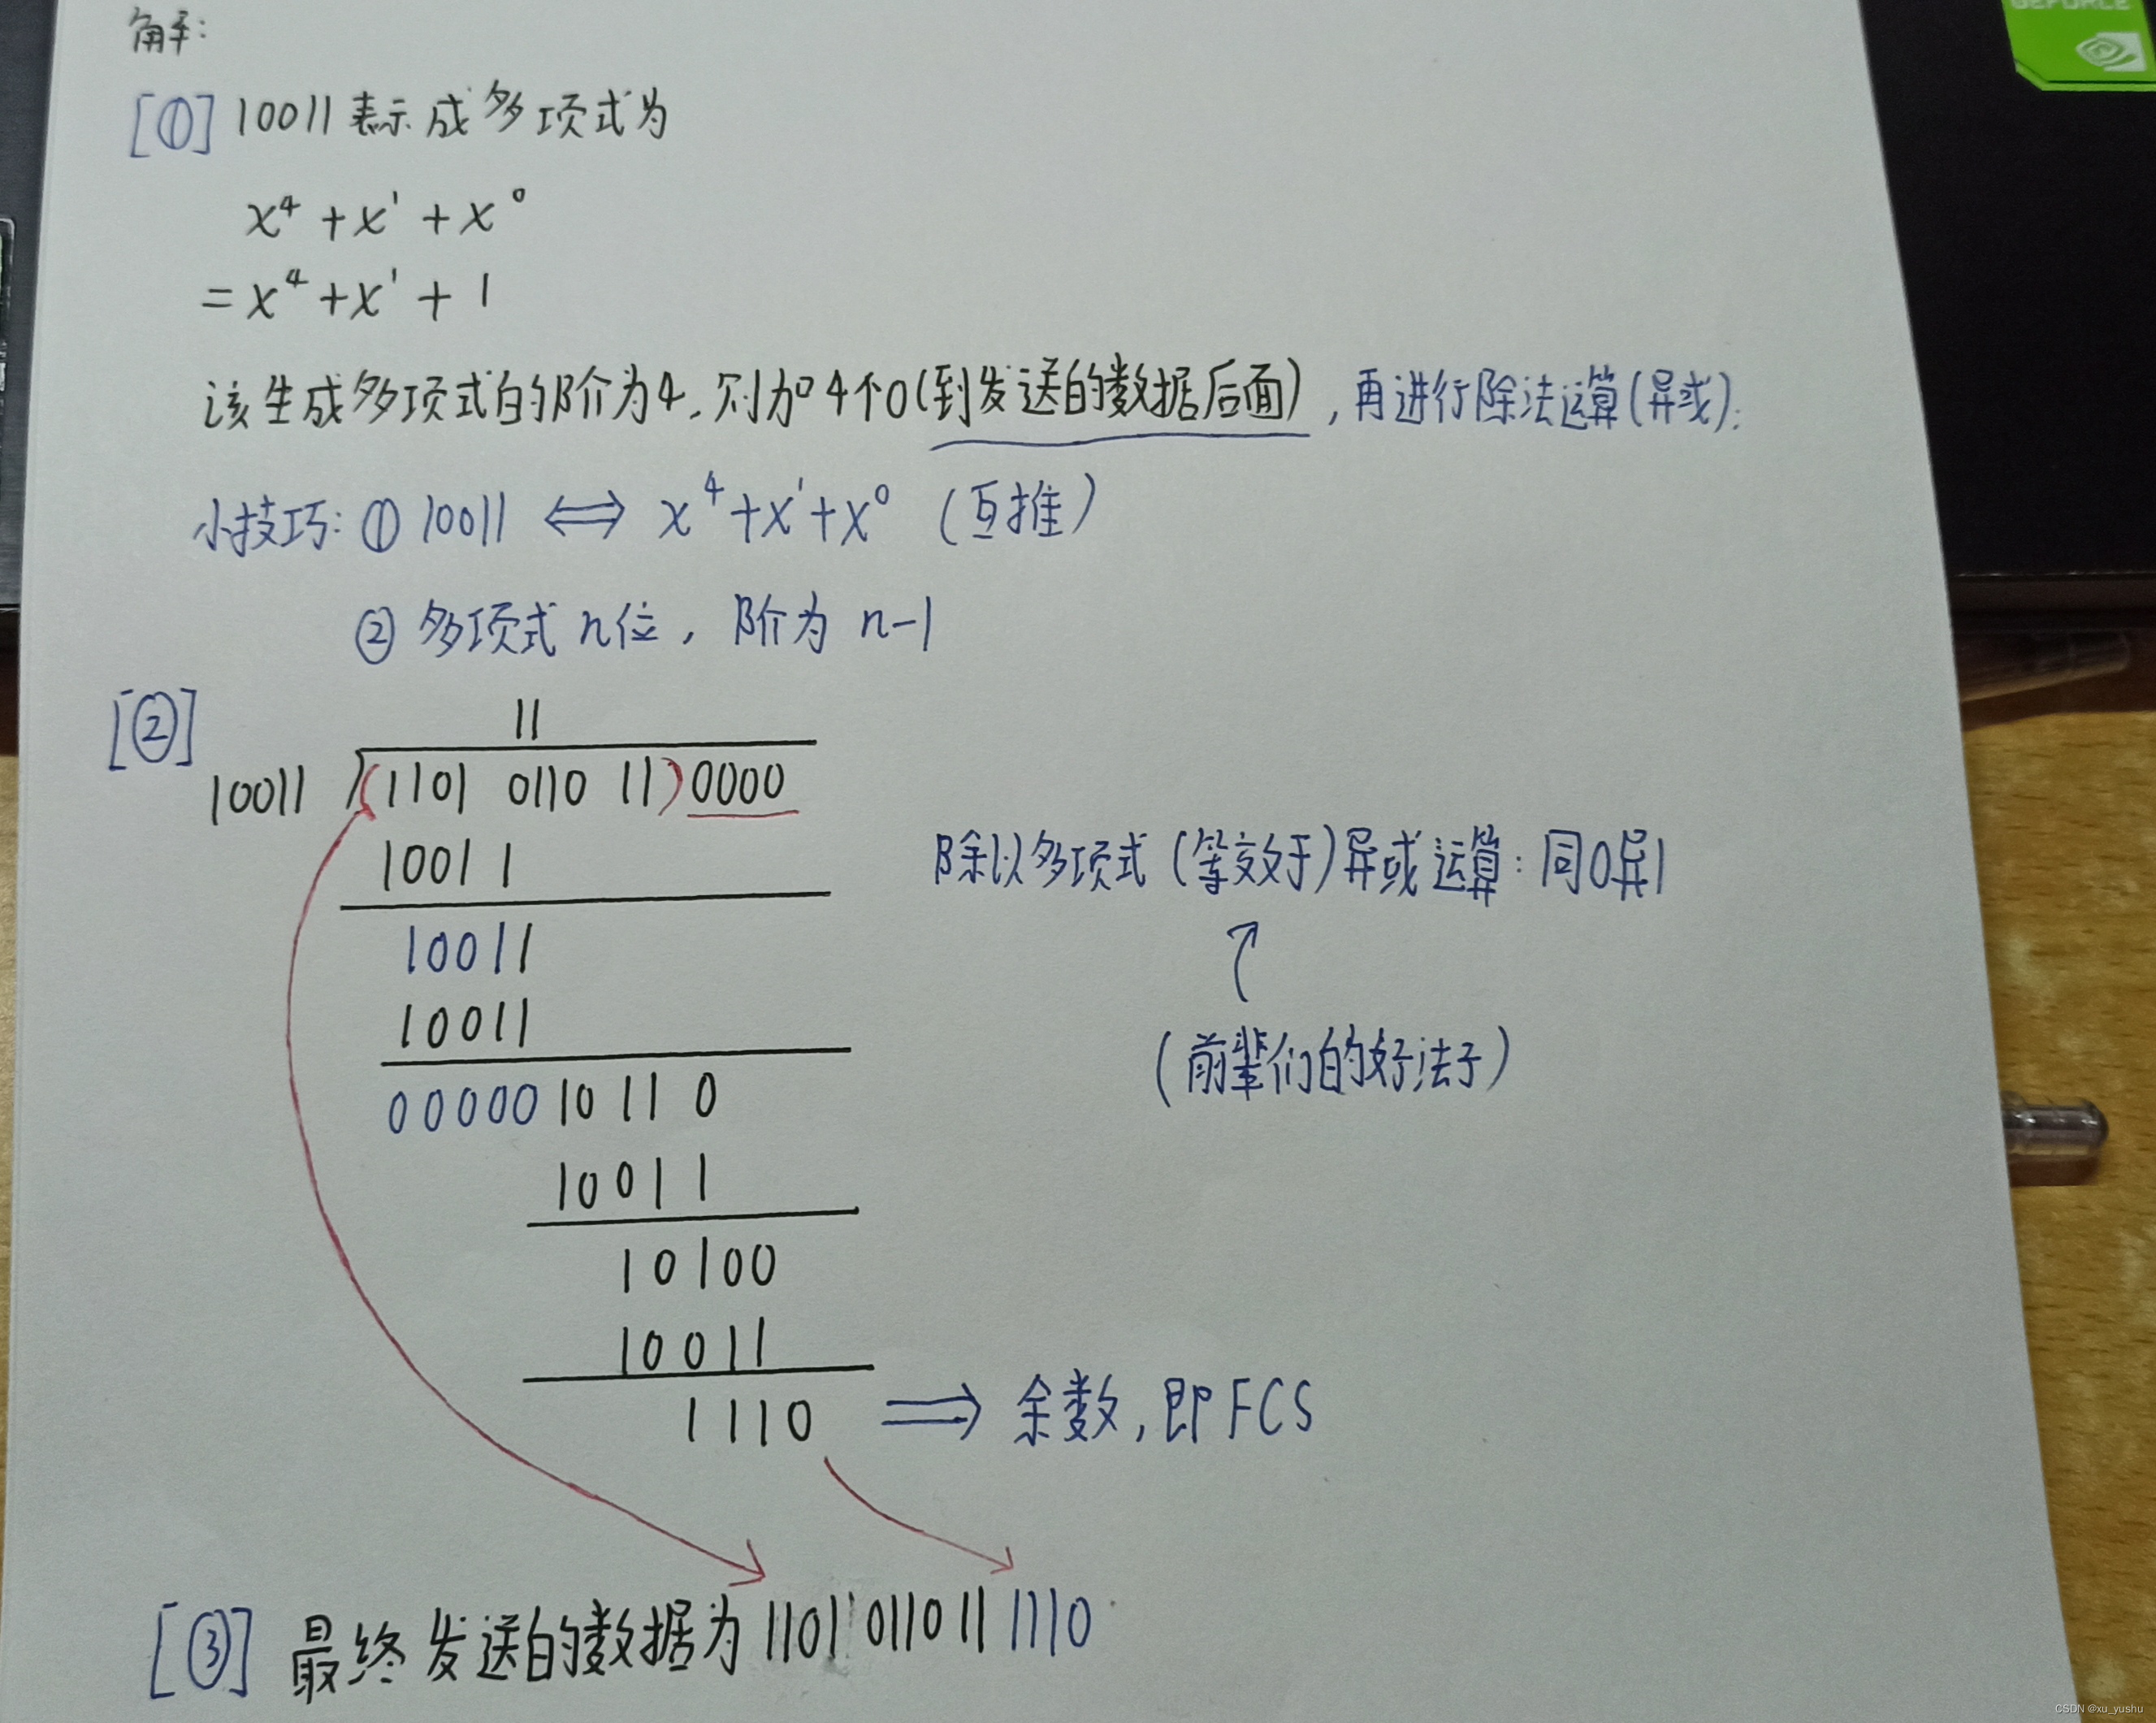 GEFORCE
解:
[①] 10011 表示成多项式为
x⁴ + x¹ + x⁰
= x⁴ + x¹ + 1
该生成多项式的阶为4,则加4个0(到发送的数据后面),再进行除法运算(异或).
小技巧: ① 10011 ⟺ x⁴+x¹+x⁰ (互推)
② 多项式 n位, 阶为 n-1
[②]
11
10011 (1101 0110 11)0000
10011
10011
10011
00000 10110
10011
10100
10011
1110 ⟹ 余数,即FCS
除以多项式(等效于)异或运算:同0异1
(前辈们的好法子)
[③] 最终发送的数据为 1101 0110 11 1110
CSDN @xu_yushu